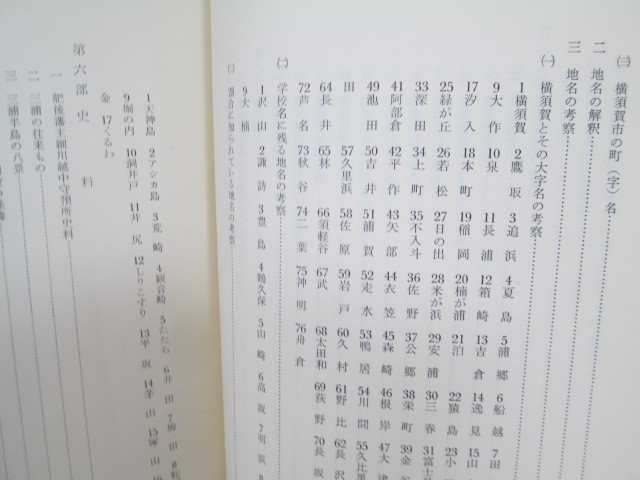 (三) 横須賀市の町(字)名
二 地名の解釈
三 地名の考察
(一) 横須賀とその大字名の考察
1横須賀 2鷹取 3追浜 4夏島 5浦郷 6船越 7田
9大作 10泉 11長浦 12箱崎 13吉倉 14逸見 15山
17汐入 18本町 19稲岡 20楠が浦 21泊 22猿島 23小
25緑が丘 26若松 27日の出 28米が浜 29安浦 30三春 31富士
33深田 34上町 35不入斗 36佐野 37公郷 38栄町 39金谷
41阿部倉 42平作 43矢部 44衣笠 45森崎 46根岸 47大津
49池田 50吉井 51浦賀 52走水 53鴨居 54川間 55久比里
田 57久里浜 58佐原 59岩戸 60久村 61野比 62長沢
64長井 65林 66須軽谷 67武 68太田和 69荻野 70長坂
72芦名 73秋谷 74二葉 75神明 76舟倉
(二) 学校名に残る地名の考察
1沢山 2諏訪 3豊島 4鶴久保 5山崎 6高坂 7明浜 8
9大楠
割合に知られている地名の考察
1天神島 2アシカ島 3荒崎 4観音崎 5たたら 6井田 7梅田 8
9堀の内 10洞井戸 11井尻 12しりこすり 13平坂 14茅山 15塚山
金 17くるわ
第六部 史料
一 肥後藩主細川越中守預所史料
二 三浦の往来もの
三 三浦半島の八景